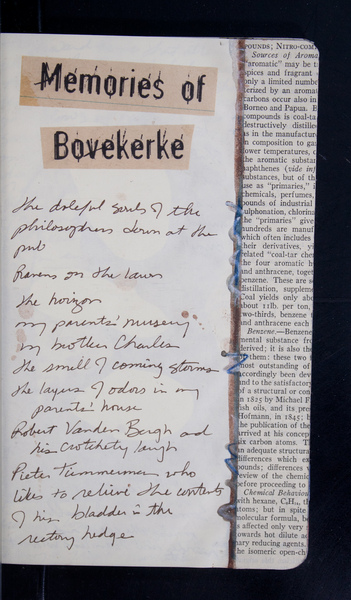 Memories of
Bovekerke
The doleful souls of the
philosophers down at the
pub
Ravens on the lawn
The horizon
my parents' nursery
my brother Charles
The smell of coming storms
The layers of odors in my
parents' house
Robert Vanden Bergh and
his crotchety laugh
Pieter Timmerman who
likes to relieve the contents
of his bladder in the
rectory hedge
POUNDS; NITRO-COM
Sources of Aroma
"aromatic" may be t
spices and fragrant
only a limited numbe
terized by an aromat
carbons occur also in
Borneo and Papua. B
compounds is coal-ta
destructively distille
as in the manufacture
in composition to ga
lower temperatures, c
the aromatic substa
naphthenes (vide inf
substances, but of th
use as "primaries," i
chemicals, perfumes,
pounds of industrial
sulphonation, chlorina
the "primaries" give
hundreds are manu
which often includes
their derivatives, yi
related "coal-tar che
the four aromatic h
and anthracene, toge
benzene. These are s
distillation, suppleme
Coal yields only abo
about 11lb. per ton,
two-thirds, benzene
and anthracene each
Benzene.—Benzene
mental substance fro
derived; it is also the
them: these two
most outstanding of
accordingly been dev
and to the satisfactor
of a structural or con
in 1825 by Michael F
fish oils, and its pres
Hofmann, in 1845; b
the publication of the
arrived at his concep
six carbon atoms. T
an adequate structura
differences which e
pounds; differences w
review of the chemic
before proceeding to
Chemical Behaviou
with hexane, C₆H₁₄, th
atoms; but in spite
molecular formula, be
is affected only very s
towards hot dilute a
ary reducing agents.
the isomeric open-ch